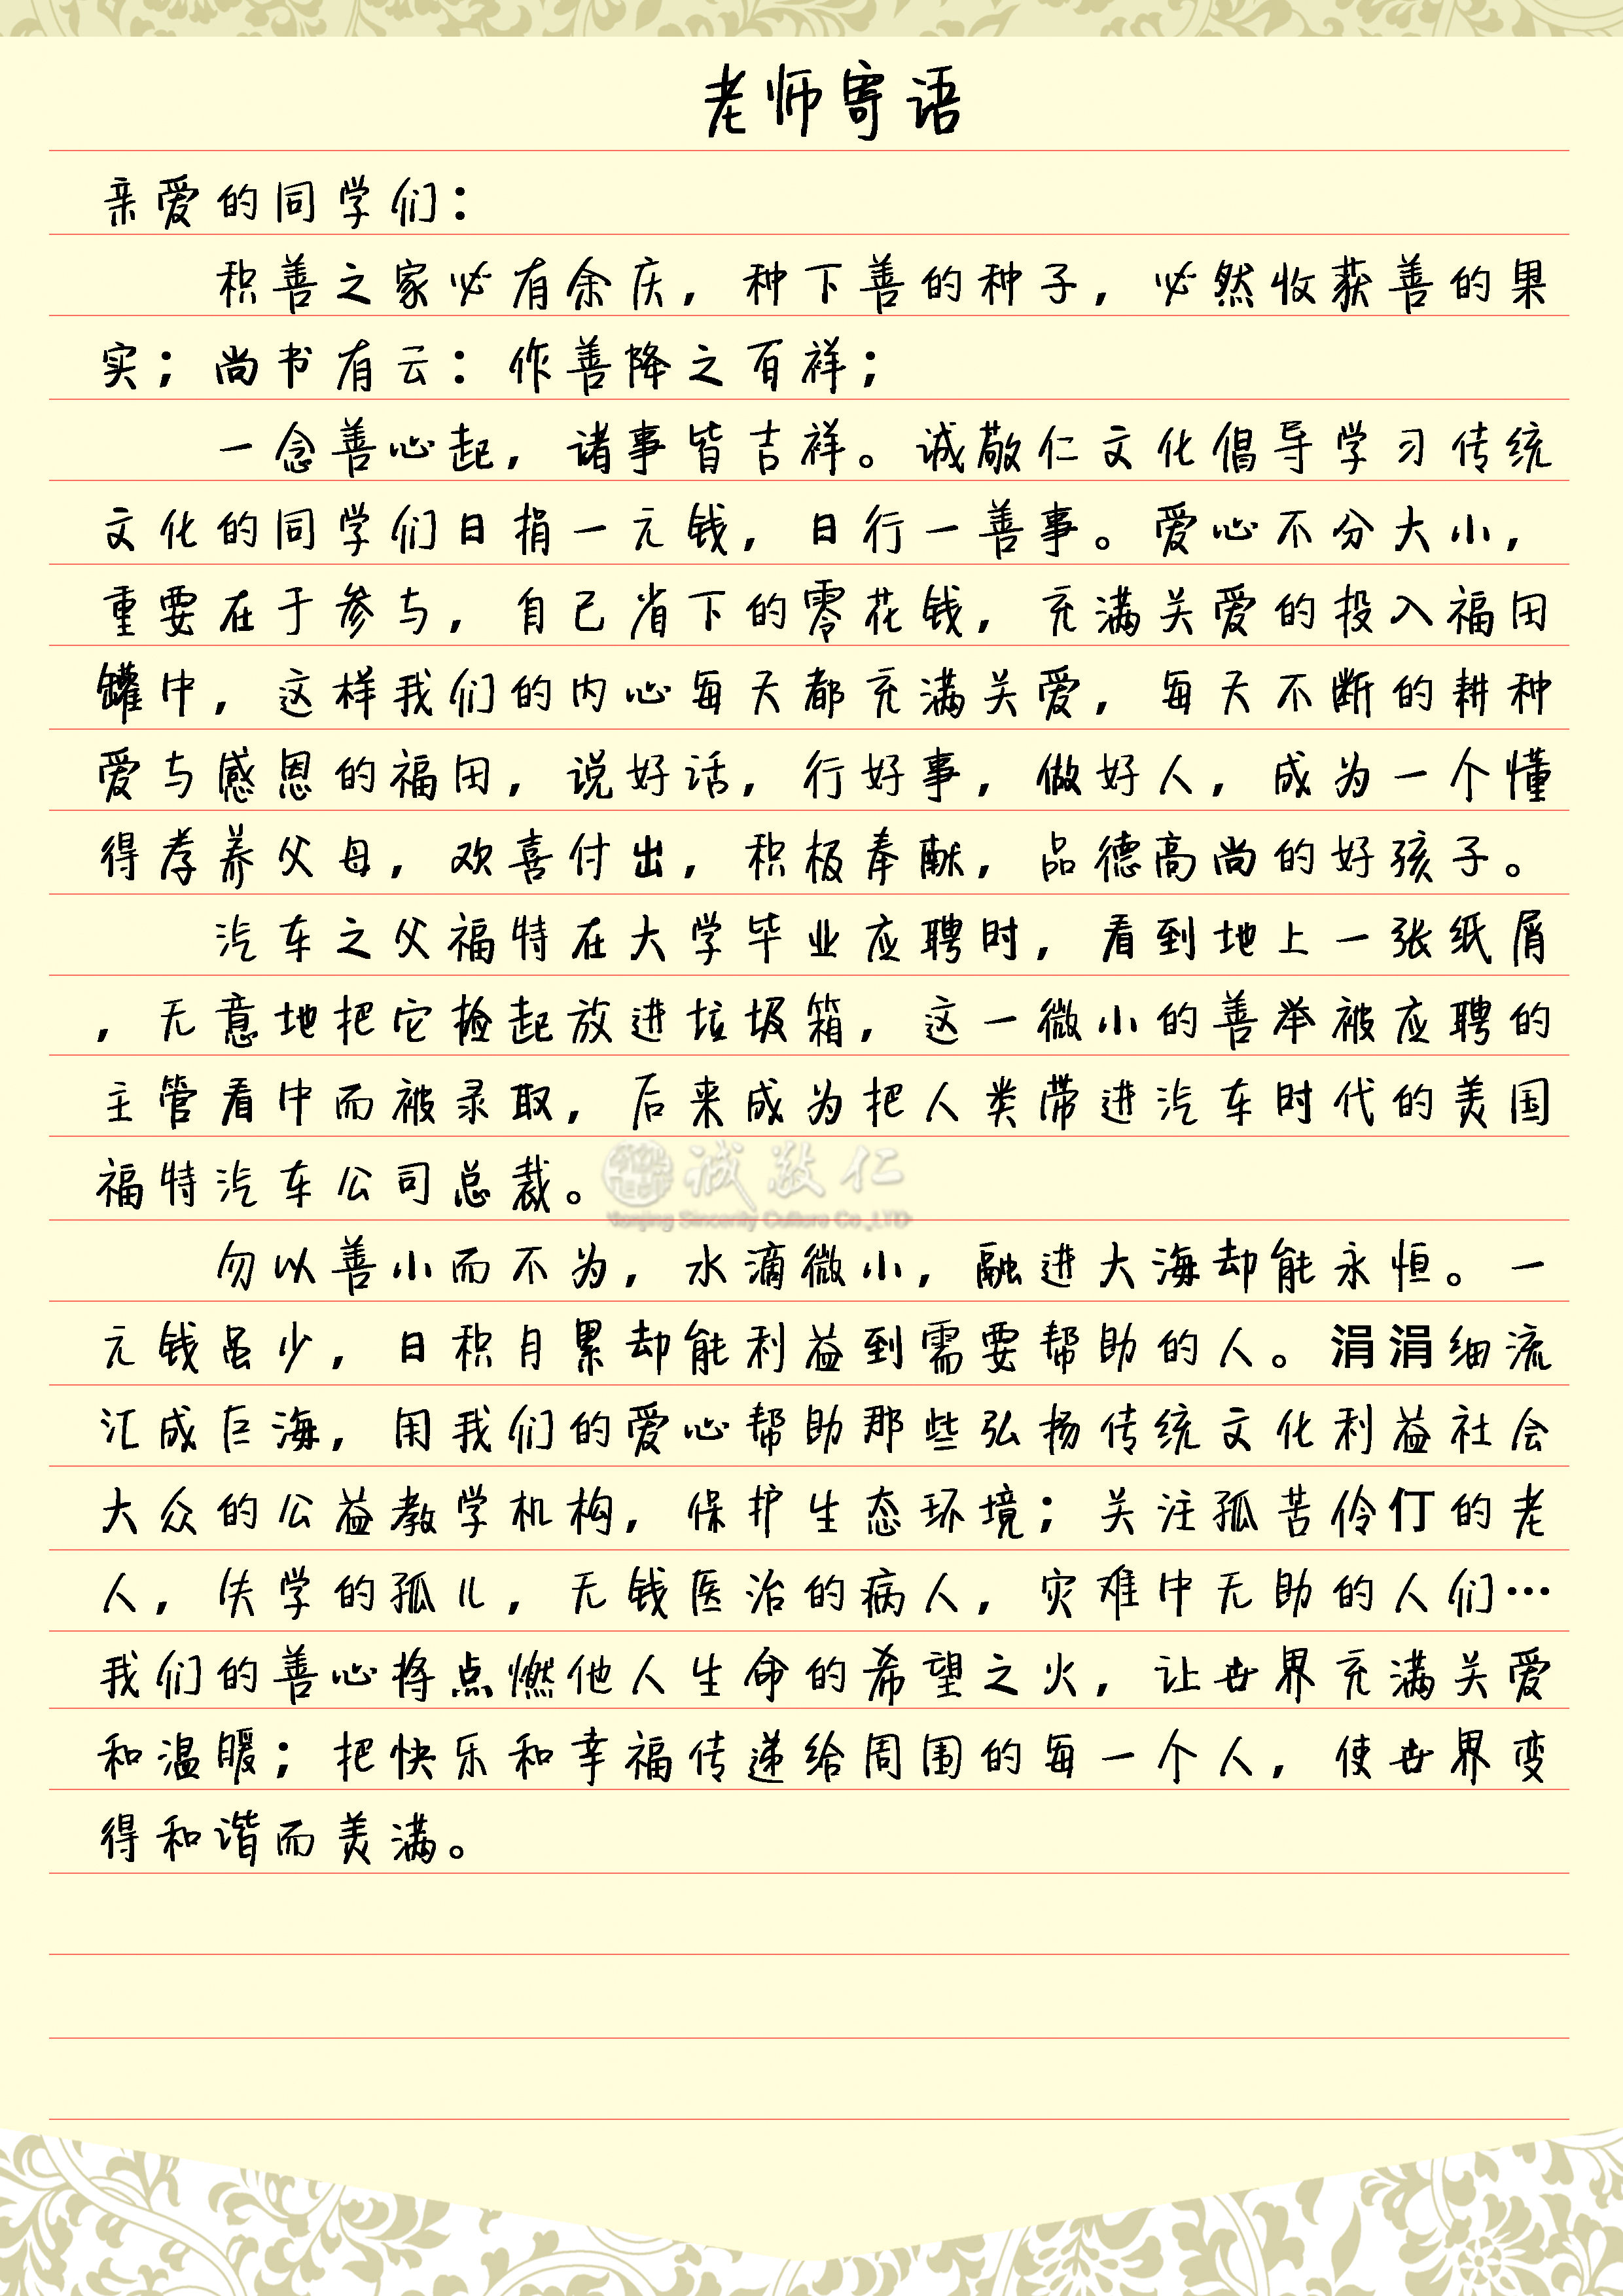 老师寄语
亲爱的同学们：
积善之家必有余庆，种下善的种子，必然收获善的果
实；尚书有云：作善降之百祥；
一念善心起，诸事皆吉祥。诚敬仁文化倡导学习传统
文化的同学们日捐一元钱，日行一善事。爱心不分大小，
重要在于参与，自己省下的零花钱，充满关爱的投入福田
罐中，这样我们的内心每天都充满关爱，每天不断的耕种
爱与感恩的福田，说好话，行好事，做好人，成为一个懂
得孝养父母，欢喜付出，积极奉献，品德高尚的好孩子。
汽车之父福特在大学毕业应聘时，看到地上一张纸屑
，无意地把它捡起放进垃圾箱，这一微小的善举被应聘的
主管看中而被录取，后来成为把人类带进汽车时代的美国
福特汽车公司总裁。
诚敬仁
Sincerity Culture Co.,LTD
勿以善小而不为，水滴微小，融进大海却能永恒。一
元钱虽少，日积月累却能利益到需要帮助的人。涓涓细流
汇成巨海，用我们的爱心帮助那些弘扬传统文化利益社会
大众的公益教学机构，保护生态环境；关注孤苦伶仃的老
人，失学的孤儿，无钱医治的病人，灾难中无助的人们…
我们的善心将点燃他人生命的希望之火，让世界充满关爱
和温暖；把快乐和幸福传递给周围的每一个人，使世界变
得和谐而美满。